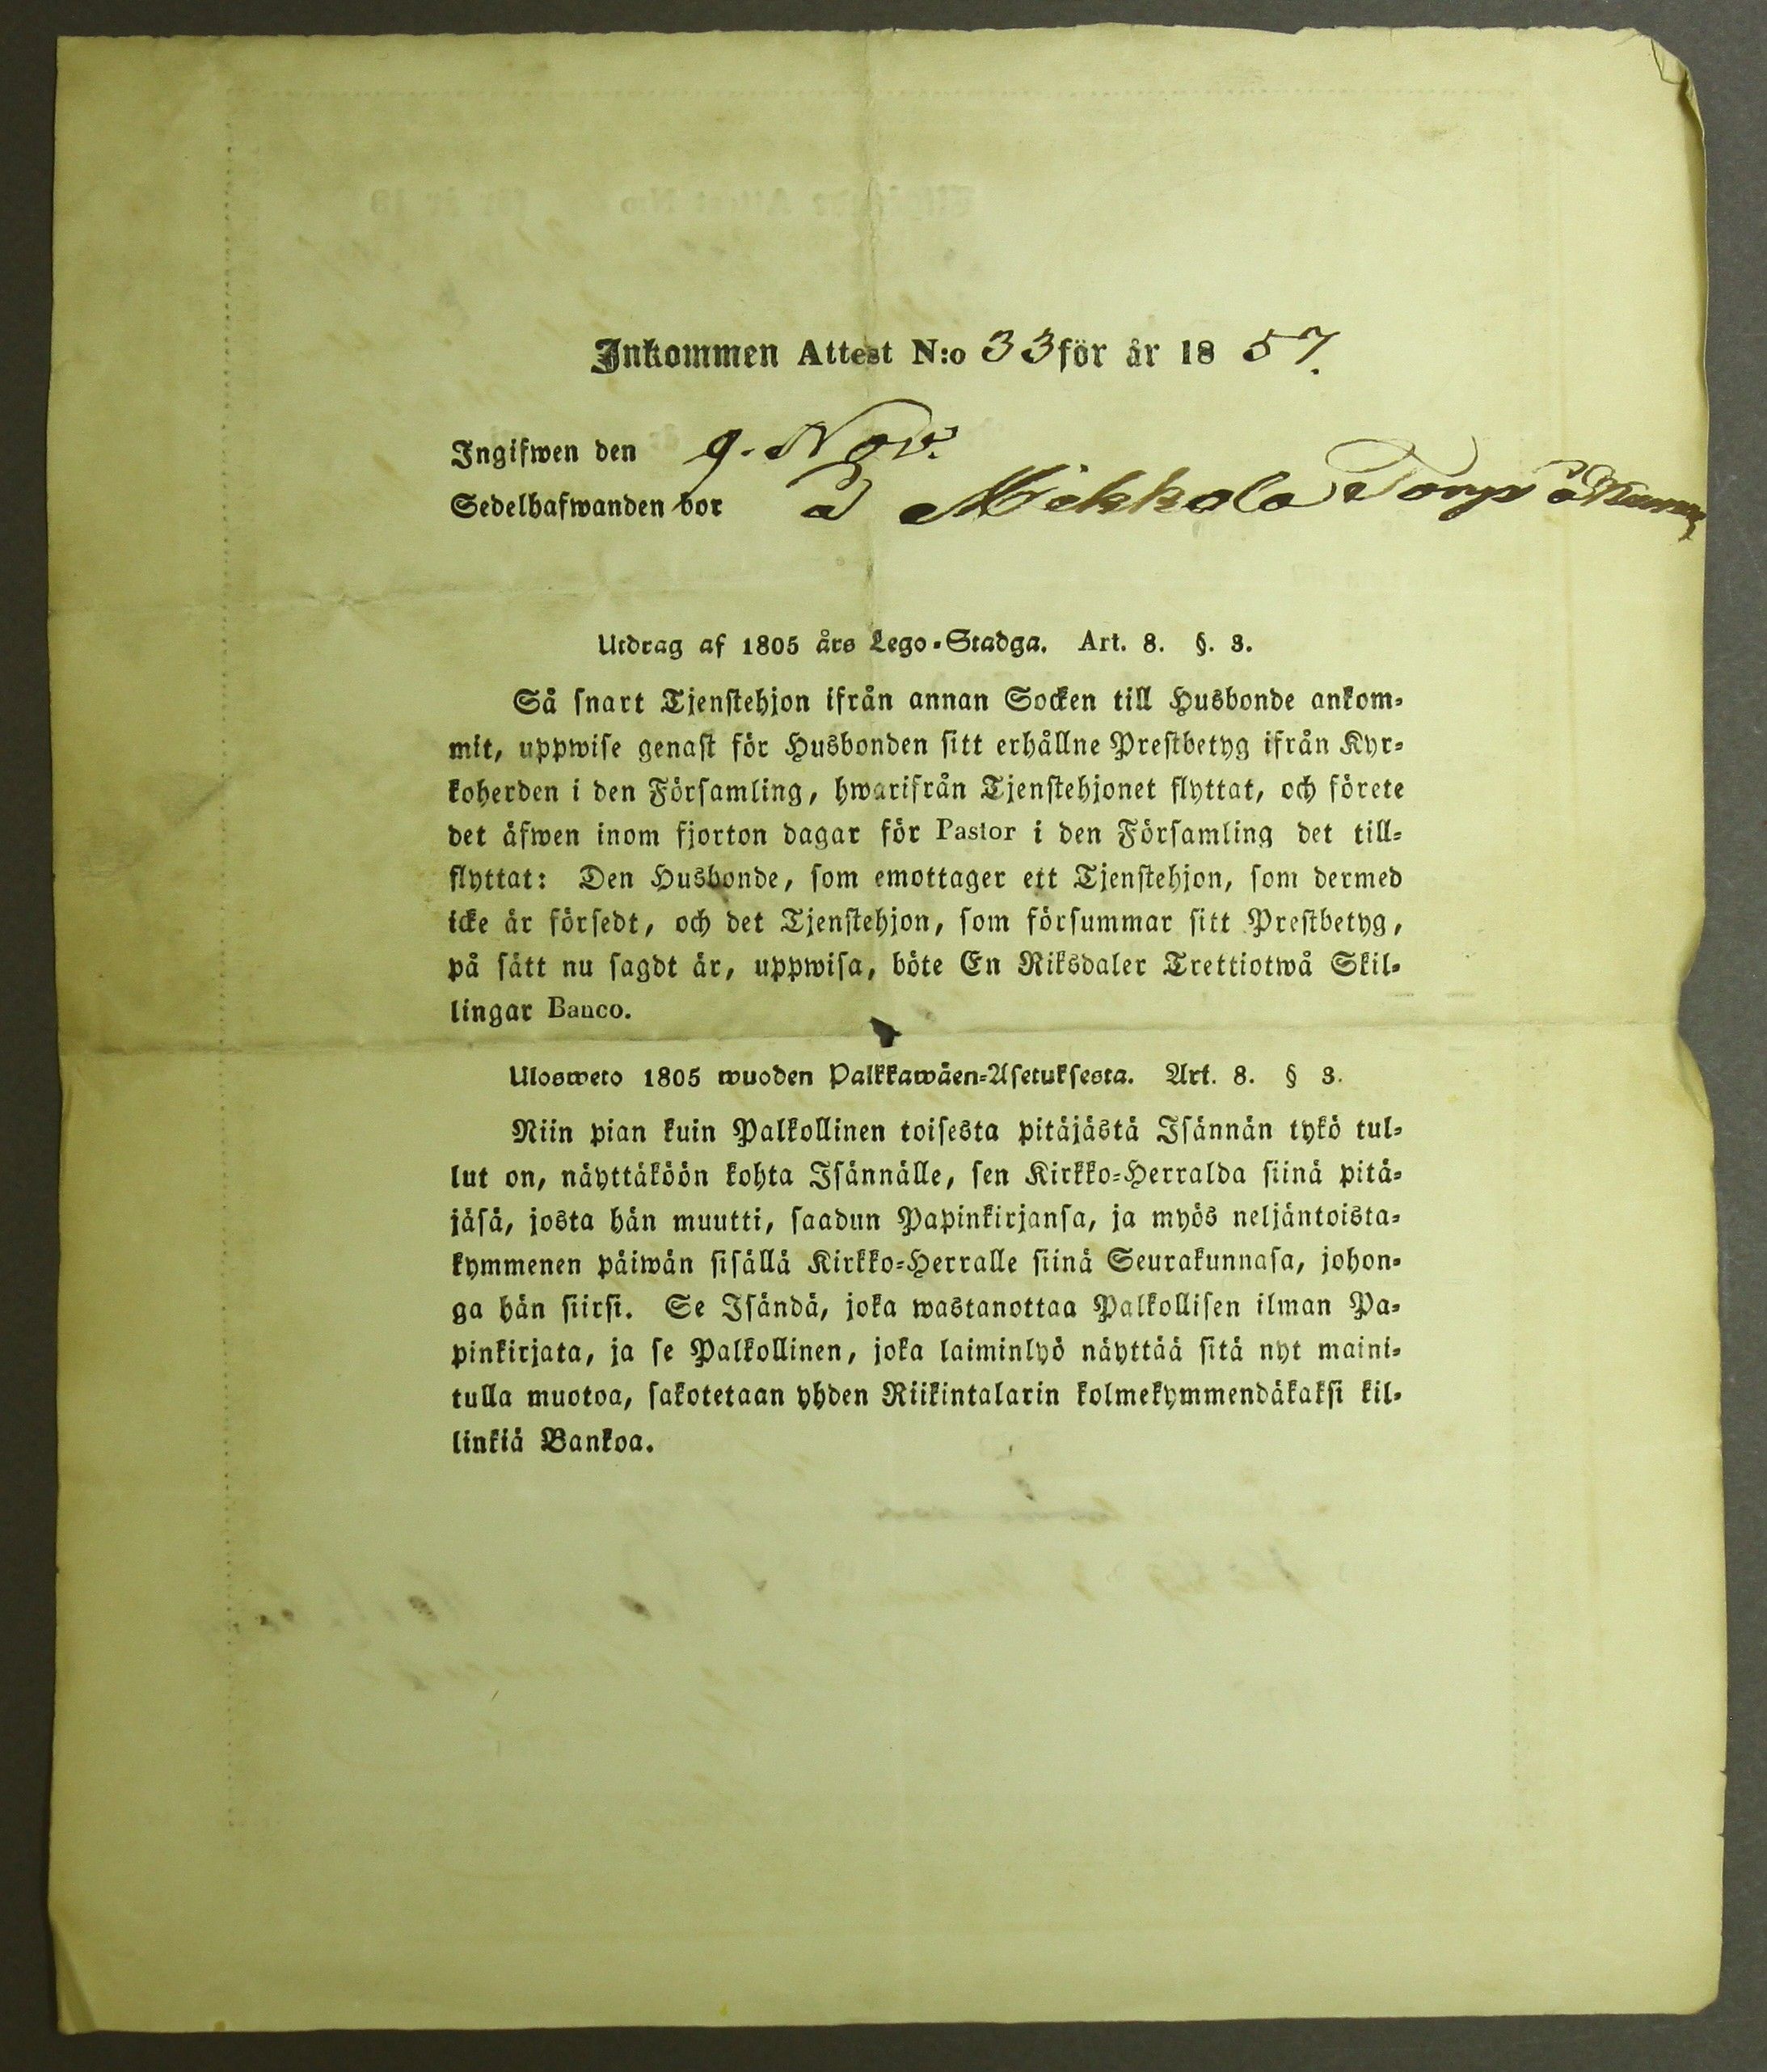 Inkommen Attest N:o 33 för år 1857.
Ingifwen den 9. Nov.
Sedelhafwanden bor å Mikkola Torp å
Utdrag af 1805 års Lego-Stadga. Art. 8. §. 3.
Så snart Tjenstehjon ifrån annan Socken till Husbonde ankom-
mit, uppwise genast för Husbonden sitt erhållne Prestbetyg ifrån Kyr-
koherden i den Församling, hwarifrån Tjenstehjonet flyttat, och förete
det äfwen inom fjorton dagar för Pastor i den Församling det till-
flyttat: Den Husbonde, som emottager ett Tjenstehjon, som dermed
icke är försedt, och det Tjenstehjon, som försummar sitt Prestbetyg,
på sätt nu sagdt är, uppwisa, böte En Riksdaler Trettiotwå Skil-
lingar Banco.
Ulosweto 1805 wuoden Palkkawäen-Asetuksesta. Art. 8. § 3.
Niin pian kuin Palkollinen toisesta pitäjästä Isännän tykö tul-
lut on, näyttäköön kohta Isännälle, sen Kirkko-Herralda siinä pitä-
jäsä, josta hän muutti, saadun Papinkirjansa, ja myös neljäntoista-
kymmenen päiwän sisällä Kirkko-Herralle siinä Seurakunnasa, johon-
ga hän siirsi. Se Isändä, joka wastanottaa Palkollisen ilman Pa-
pinkirjata, ja se Palkollinen, joka laiminlyö näyttää sitä nyt maini-
tulla muotoa, sakotetaan yhden Riikintalarin kolmekymmendäkaksi kil-
linkiä Bankoa.